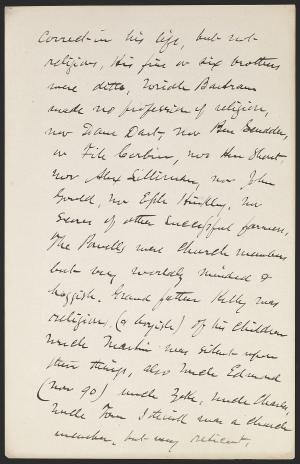 correct in his life, but not
religious, His five or six brothers
were ditto, Uncle
made no profession of religion,
nor Dart, nor Ben Scudder,
or File Corbin, nor Short,
nor Alex Silliman, nor John
Gould, nor Eph Hinkley, nor
scores of other successful farmers,
The Powells were church members
but very worldly minded &
hoggish. Grand father Kelly was
religious, of his children
Uncle Martin was silent upon
these things, also Uncle Edmund
(now 90) uncle Zeke, Uncle Charles,
Uncle Tom I think was a church
member, but very reticent,